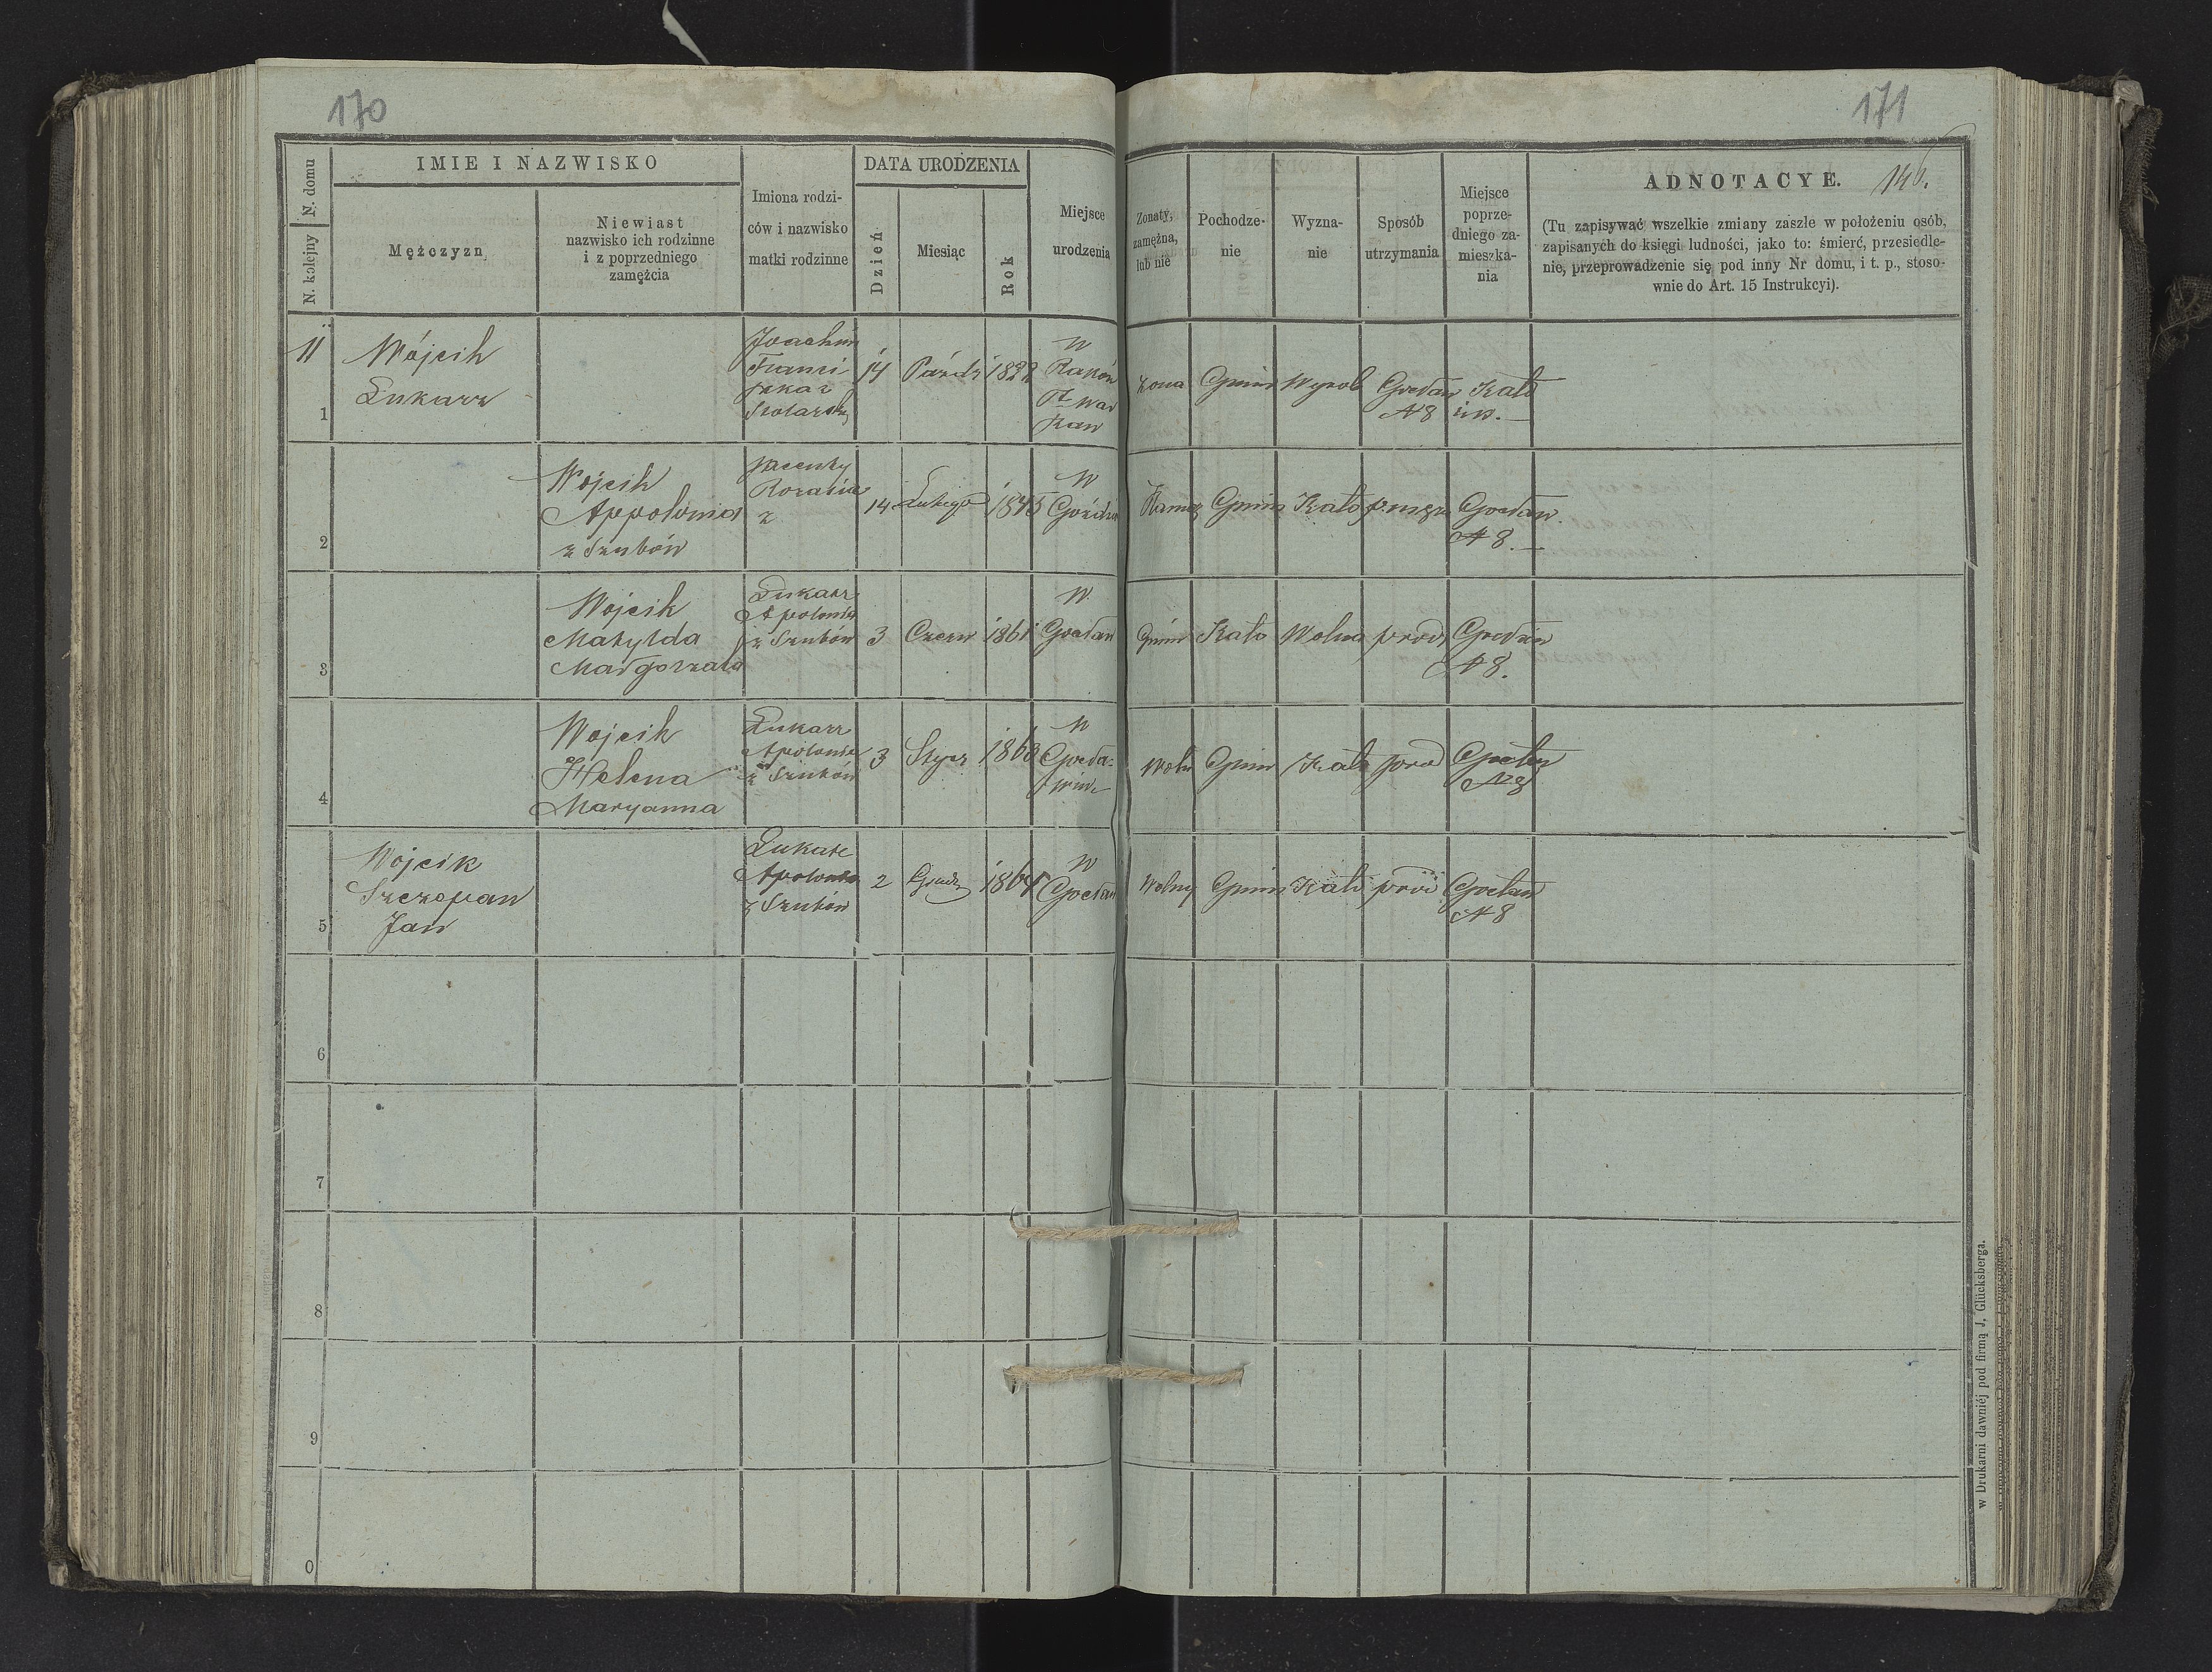 170
171
N. domu
N. kolejny
IMIE I NAZWISKO
Mężczyzn
Niewiast
nazwisko ich rodzinne
i z poprzedniego
zamężcia
Imiona rodzi-
ców i nazwisko
matki rodzinne
DATA URODZENIA
Dzień
Miesiąc
Rok
Miejsce
urodzenia
Żonaty,
zamężna,
lub nie
Pochodze-
nie
Wyzna-
nie
Sposób
utrzymania
Miejsce
poprze-
dniego za-
mieszka-
nia
ADNOTACYE. 146.
(Tu zapisywać wszelkie zmiany zaszłe w położeniu osób,
zapisanych do księgi ludności, jako to: śmierć, przesiedle-
nie, przeprowadzenie się pod inny Nr domu, i t. p., stoso-
wnie do Art. 15 Instrukcyi).
11
1
Wójcik
Łukasz
Joachim
14
W
Gmin Wyrob
N 8
2
Wojcik
Appolonia
z Szubów
Wincenty
Rozalia
z
14 Lutego 1845
W
Gmin Kato
N 8.
3
Wojcik
Matylda
Małgorzata
Łukasz
Apolonia
z Szubów
3 Czerw 1861
W
Gocław
Gmin Kato Wolna
Gocław
N 8.
4
Wojcik
Helena
Maryanna
Łukasz
Apolonia
z Szubów
3 Stycz 1863
W
Woln Gmin Kato
N 8
5
Wojcik
Szczepan
Jan
Łukasz
Apolonia
z Szubów
2 Grudz
W
Gocław
Wolny Gmin Kato
Gocław
N 8
6
7
8
9
0
w Drukarni dawniéj pod firmą J. Glücksberga.